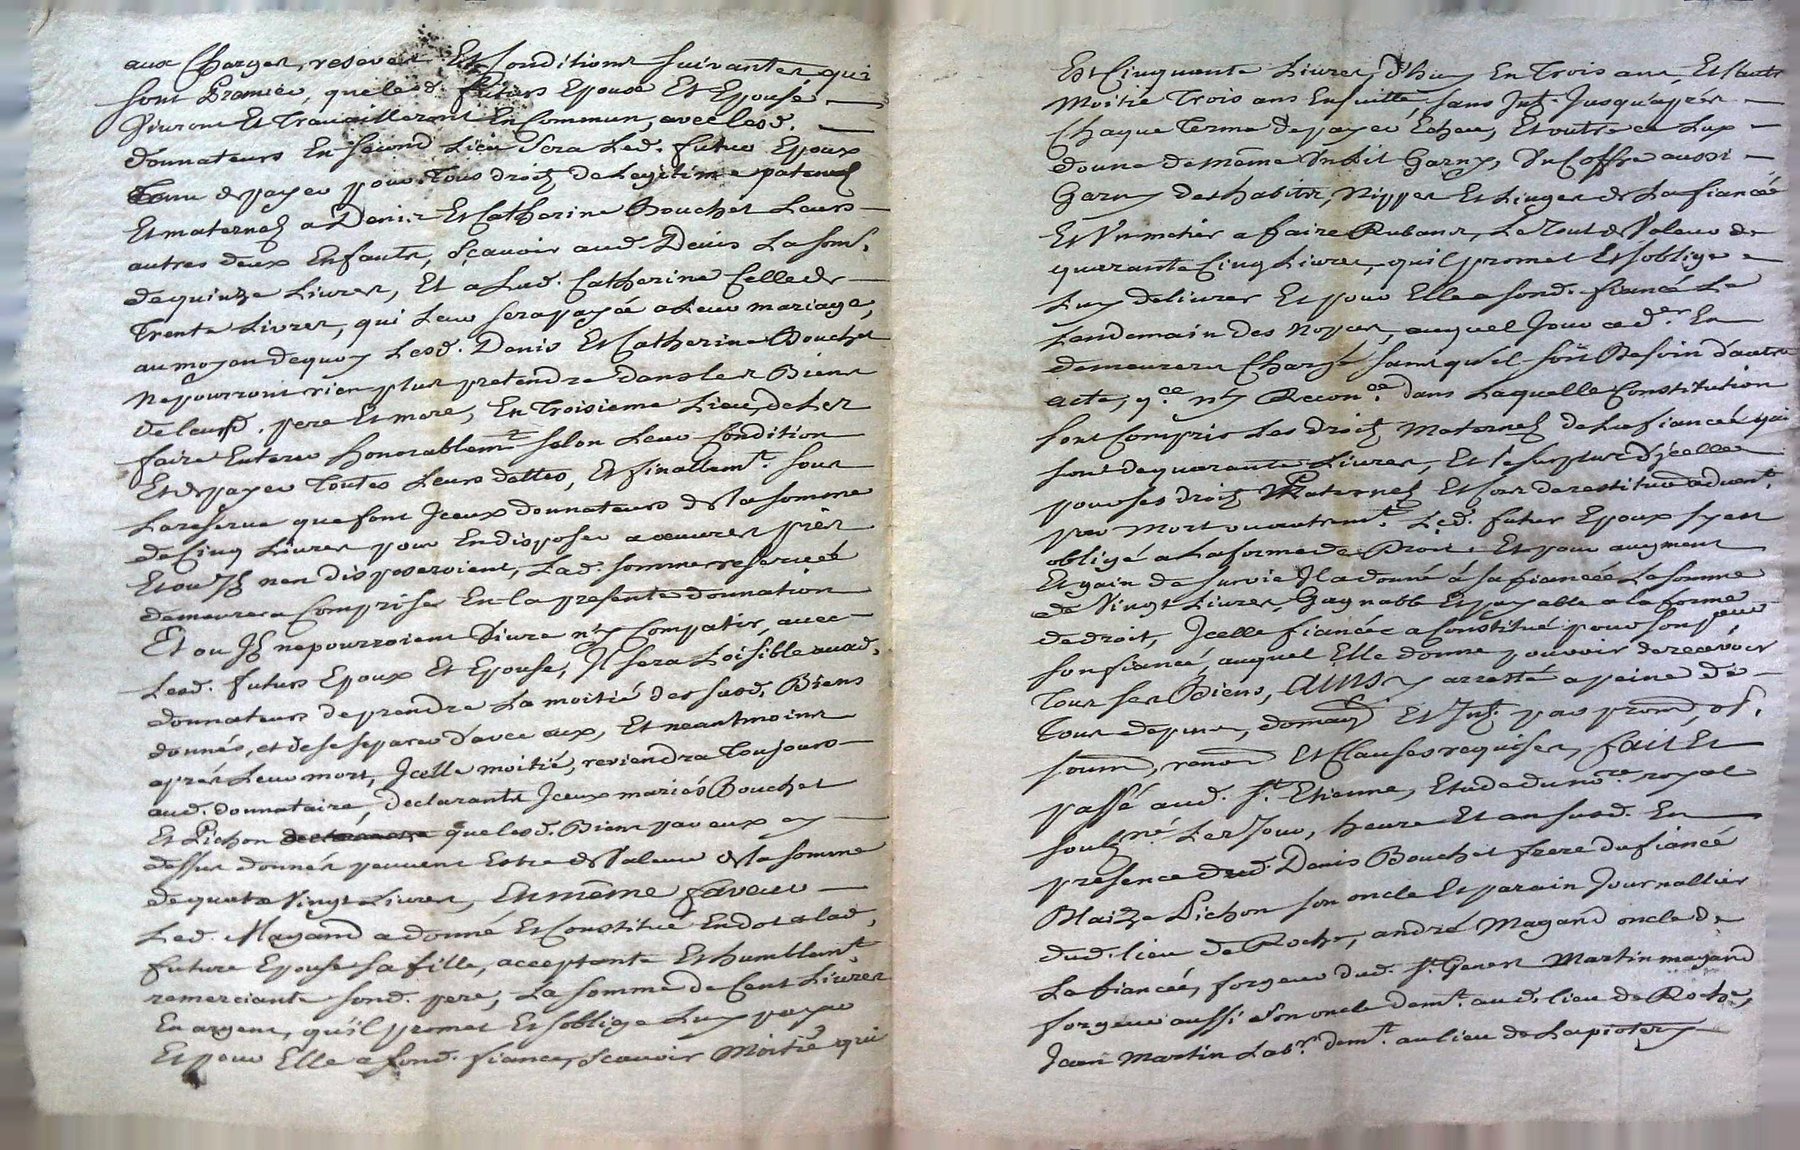 aux Charges, reserves Et Conditions suivantes, qui
sont Premiere, que lesd. futurs Epoux Et Epouse
Vivront Et Travailleront En Commun, avec lesd.
donnateurs En second Lieu Sera Led. futur Epoux
Tenu de payer pour Tous droitz de Legitime paternel
Et maternelz a Denis Et Catherine Bouchet Leurs
autres deux Enfants, Sçavoir aud. Denis La som.
de quinze Livres, Et a Lad. Catherine Celle de
Trente Livres, qui Leur sera payée a Leur mariage,
au moyen de quoy Lesd. Denis Et Catherine Bouchet
ne pourront rien plus pretendre dans les Biens
de leursd. pere Et mere, En Troisieme Lieu, de Les
faire Enterer honnorablemt selon Leur Condition
Et de payer Toutes Leurs dettes, Et finallemt. sous
La reserve que font Iceux donnateurs de la somme
de Cinq Livres pour En disposer a oeuvres pies
Et ou Ilz nen disposeroient, Lad. somme reservée
demeurera Comprise En la presente donnation
Et ou Ilz ne pourroient Vivre ny Compatir, avec
Lesd. futurs Epoux Et Epouse, Il sera Loisible auxd.
donnateurs de prendre La moitié des susd. Biens
donnés, et de se separer d'avec eux, Et neantmoins
aprés Leur mort, Icelle moitié, reviendra Toujours
aud. donnataire, declarants Iceux mariés Bouchet
Et Pichon que lesd. Biens par eux cy
dessus donnés peuvent Estre de Valeur de la somme
de quatre Vingt Livres, En même faveur
Led. Magand a donné Et Constitué En dot a lad.
future Epouse sa fille, acceptante Et humblemt.
remerciante sond. pere, La somme de Cent Livres
En argent, qu'il promet Et s'oblige Luy payer
Et pour Elle a sond. fiancé, Scavoir Moitié qui
Est Cinquante Livres, d'huy En Trois ans, Et l'autre
Moitié Trois ans Ensuitte, sans Int. Jusqu'aprés
Chaque Terme de payer Echeu, Et outre ce Luy
donne de même Un Lit Garny, Un Coffre aussi
Garny des habits, Nippes Et Linges de La fiancée
Et Un metier a faire Rubans, Le Tout de Valeur de
quarante Cinq Livres, qu'il promet Et s'oblige
Luy delivrer Et pour Elle a sond. fiancé Le
Lendemain des Nopces, auquel Jour ced.er En
demeurera Chargé sans qu'il soit Besoin d'autre
acte, ny Reconce. dans Laquelle Constitution
sont Compris Les droitz Maternelz de La fiancée qui
sont de quarante Livres, Et le surplus d'icelle
pour ses droitz Paternelz Et Cas de restitution advent.
par mort ou autremt. Led. futur Epoux s'y est
obligé a La forme de Droit Et pour augment
Et gain de survie Il a donné á sa fiancée La somme
de Vingt Livres, Gagnable Et payable a la forme
de droit, Icelle fiancée a Constitué pour son pcur
son fiancé, auquel Elle donne pouvoir de recevoir
Tous ses Biens, Ainsy arresté a peine de
Tous depens, domages Et Int. par prom, ob.
soum, renon Et Clauses requises, fait Et
passé aud. St. Etienne, Etude du nore. royal
soubzné Les Jour, heure Et an susd. En
presence dud. Denis Bouchet frere du fiancé
Blaize Pichon son oncle Et parain Journallier
dud. lieu de Roche, andré Magand oncle de
La fiancée, forgeur dud. St. Genes Martin magand
forgeur aussi son oncle demt. aud. lieu de Roche,
Jean Martin Labr. demt. au lieu de Lapiotery